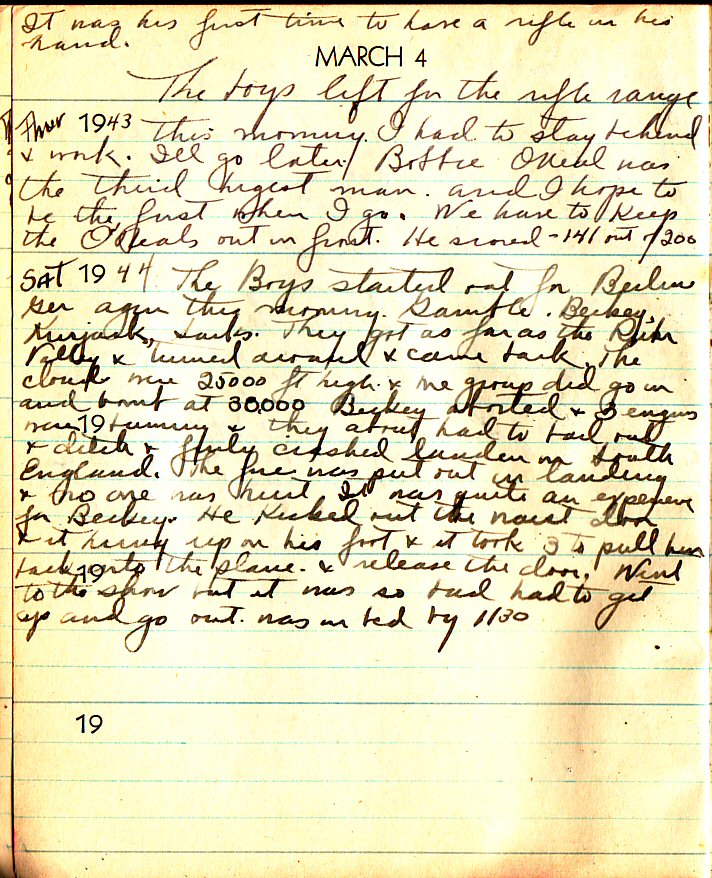 It was his first time to have a rifle in his
hand.
MARCH 4
The boys left for the rifle range
Thur 1943 this morning. I had to stay behind
& work. I'll go later. Bobbie ONeal was
the third higest man. and I hope to
be the first when I go. We have to keep
the O'Neals out in front. He scored - 141 out of 200
SAT 1944 The Boys started out for Berlin
Ger again this morning. Gamble. Beckey,
Kurjack, Sacks. They got as far as the Ruhr
Valley & turned around & came back. The
clouds were 25000 ft high. & one group did go in
and bomb at 30,000 Beckey aborted & 3 engins
were 19 & they about had to bail out
& ditch & finly crashed landed in South
England. The fire was put out in landing
& no one was hurt. It was quite an experience
for Beckey. He kicked out the waist door
& it hung up on his foot & it took 3 to pull him
back into the plane. & release the door. Went
19
to the show but it was so bad had to get
up and go out. was in bed by 1130
19